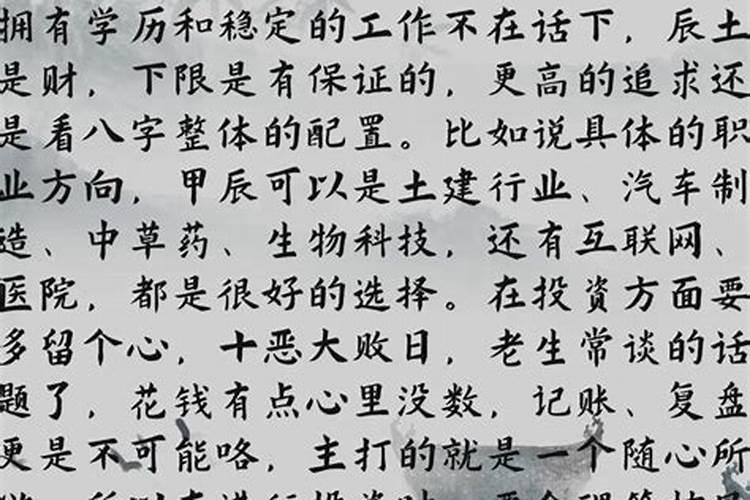 拥有学历和稳定的工作不在话下，辰土
是财，下限是有保证的，更高的追求还
是看八字整体的配置。比如说具体的职
业方向，甲辰可以是土建行业、汽车制
造、中草药、生物科技，还有互联网、
医院，都是很好的选择。在投資方面要
多留个心，十恶大败日，老生常谈的话
题了，花钱有点心里没数，记账、复盘
更是不可能咯，主打的就是一个随心所